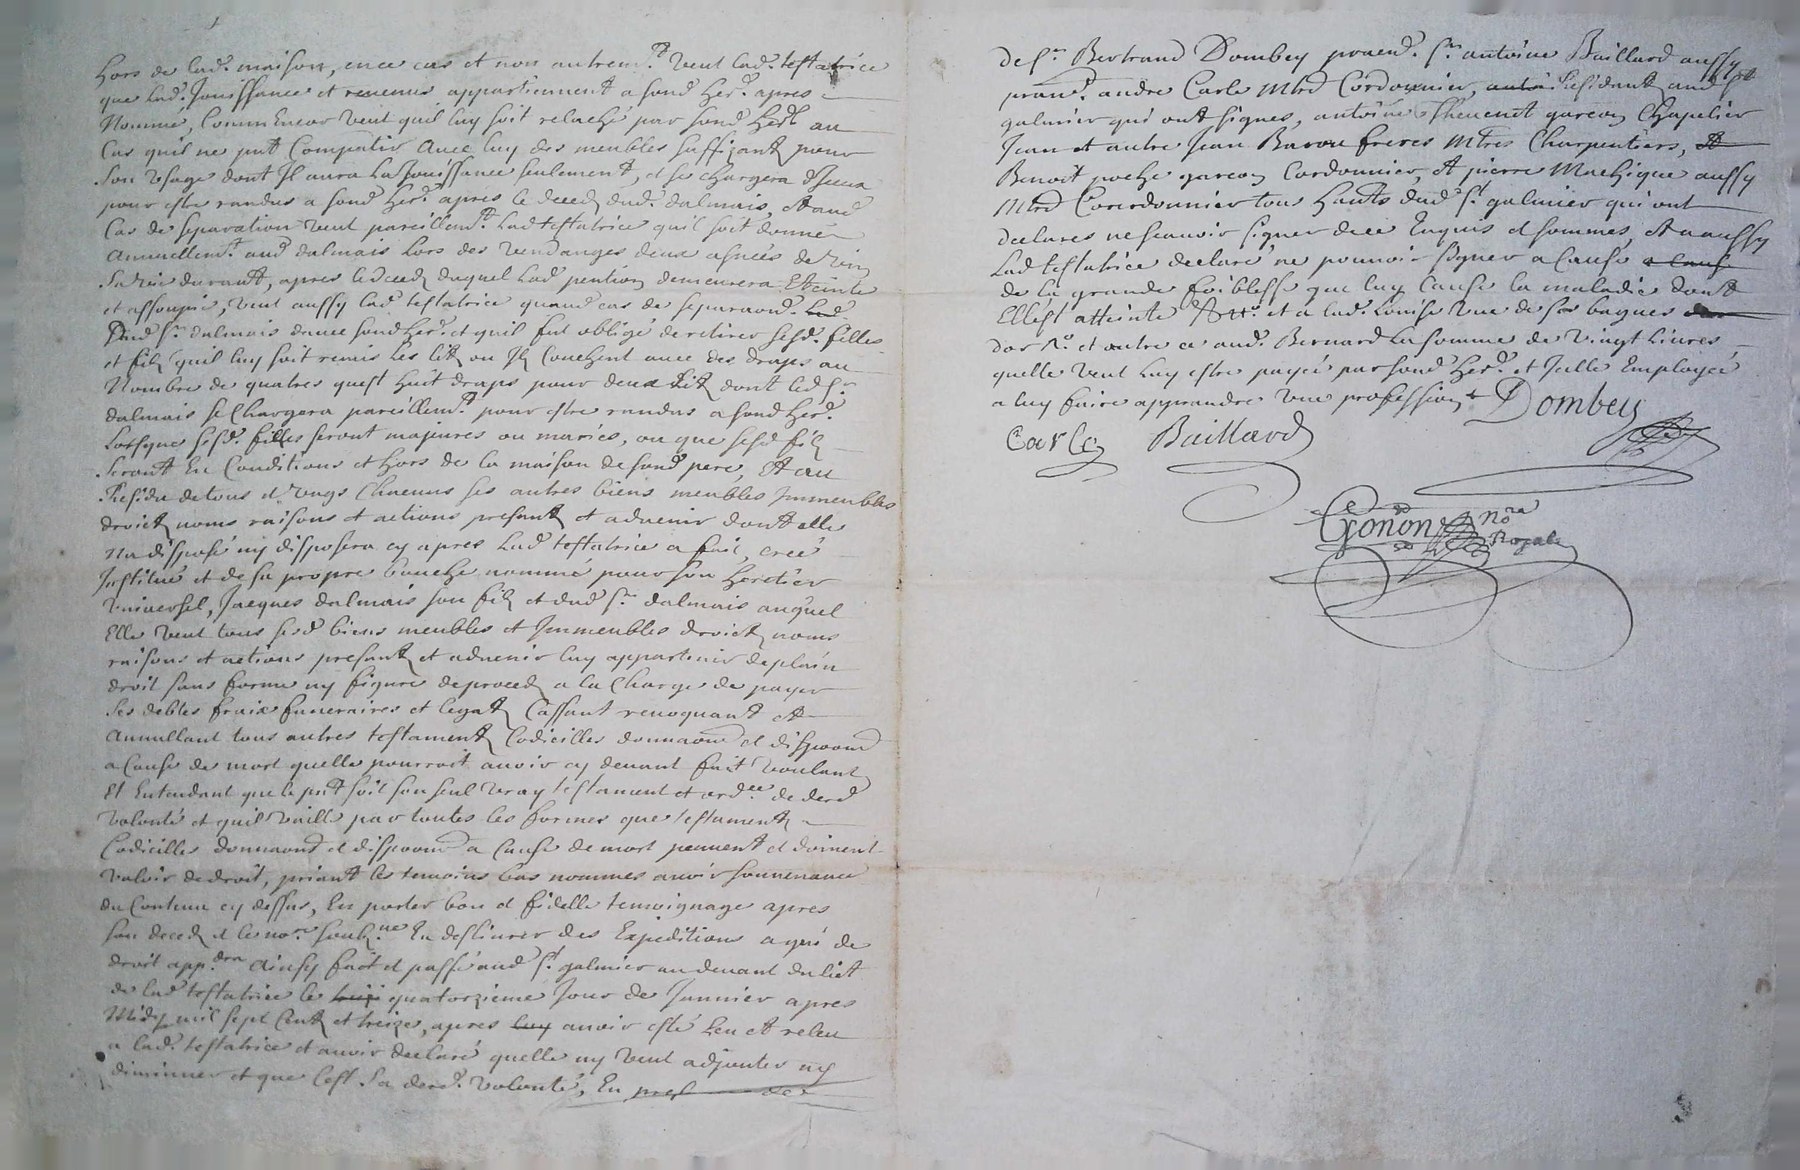 hors de lad.e maison, en ce cas et non autrem.t veut lad.e testatrice
que lad.e Jouissance et revenus appartiennent a sond her.r apres
Nommé, Comm veut quil luy soit relaché par sond her au
Cas quil ne put Compatir avec luy des meubles suffizantz pour
son usage dont Il aura la Jouissance seulement, et se chargera diceux
pour estre randus a sond her.r apres le deced dud. dalmais, et aud
Cas de separation veut pareillem.t lad testatrice quil soit donner
annuellem.t aud dalmais lors des vendanges deux asnées de vin
sa vie durant, apres le deced duquel lad pention demeurera Eteinte
et assoupie, veut aussy lad testatrice quand cas de separaon.
Dud s.r dalmais avec sond her.r et quil fut obligé de retirer sesd. filles
et filz quil luy soit remis les litz ou Ilz Couchent avec des draps au
Nombre de quatres quest huit draps pour deux litz dont led s.r
dalmais se Chargera pareillem.t pour estre randus a sond her.r
Lorsque sesd. filles seront majeures ou mariées, ou que sesd filz
seront En Conditions et hors de la maison de sond pere, et au
Residu de tous et ungs Chacuns ses autres biens meubles Immeubles
droictz noms raisons et actions presantz et advenir dont elle
Na disposé ny disposera cy apres lad testatrice a fait, creé
Institué et de sa propre bouche nommé pour son heretier
Universel, Jacques dalmais son filz et dud s.r dalmais auquel
Elle veut tous sesd biens meubles et Immeubles droictz noms
raisons et actions presantz et advenir luy appartenir de plain
droit sans forme ny figure de proced a la Charge de payer
ses debtes fraix funeraires et legatz Cassant revoquant et
Annullant tous autres testamentz Codicilles donnaons et disp
a Cause de mort quelle pourroit avoir cy devant fait voulant
Et Entendant que le pnt soit son seul vray testament et ord.ce de derd
volonté et quil vaille par toutes les formes que testamentz
Codicilles donnaons et disp a Cause de mort peuvent et doivent
valoir de droit, priant les temoins bas nommes avoir souvenance
du Contenu cy dessus, En porter bon et fidelle temoignage apres
son deced et le no.re soub.né En deslivrer des Expeditions a qui de
droit app.dra Ainsy fait et passé aud s.t galmier au devant du lict
de lad testatrice le quatorzieme Jour de Janvier apres
Midy mil sept Centz et treize, apres luy avoir esté leu et releu
a lad. testatrice et avoir declaré quelle ny veut adjouter ny
diminuer et que Cest sa derd. volonté, En pres de
de s.r Bertrand Dombey prebend. s.r antoine Baillard aussy
praticien andre Carle Mtre Cordonnier, Residant aud s.t
galmier qui ont signes, antoine Thevenet garcon Chapelier
Jean et autre Jean Baron freres Mtres Charpentiers, et
Benoit poche garcon Cordonnier, et pierre Machique aussy
Mtre Cordonnier tous habts dud s.t galmier qui ont
declares ne scavoir signer de ce Enquis et sommes, et a aussy
Lad testatrice declaré ne pouvoir signer a Cause a Cause
de la grande foiblesse que luy Cause la maladie dont
Ellest atteinte et a lad. Louise une de ses bagues
dor et outre ce aud. Bernard la somme de vingt livres
quelle veut luy estre payée par sond her.r et Icelle Employée
a luy faire apprandre une profession Dombey
Carle Baillard
Gonon No.re Royal